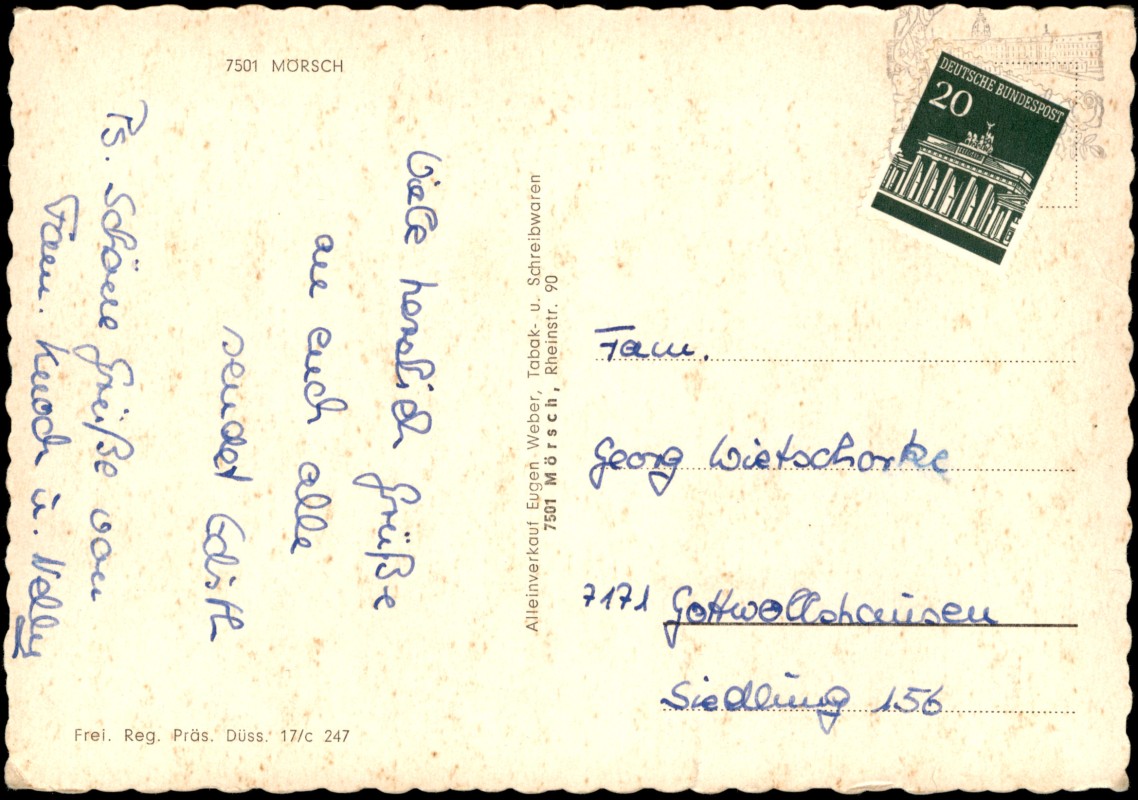 7501 MÖRSCH
Viele herzlich Grüße
an euch alle
sendet Edith
PS. Schöne Grüße von
Fam. Knoch u. Nelly
Alleinverkauf Eugen Weber, Tabak- u. Schreibwaren
7501 Mörsch, Rheinstr. 90
DEUTSCHE BUNDESPOST
20
Fam.
Georg Wietschorke
7171 Gottwollshausen
Siedlung 156
Frei. Reg. Präs. Düss. 17/c 247